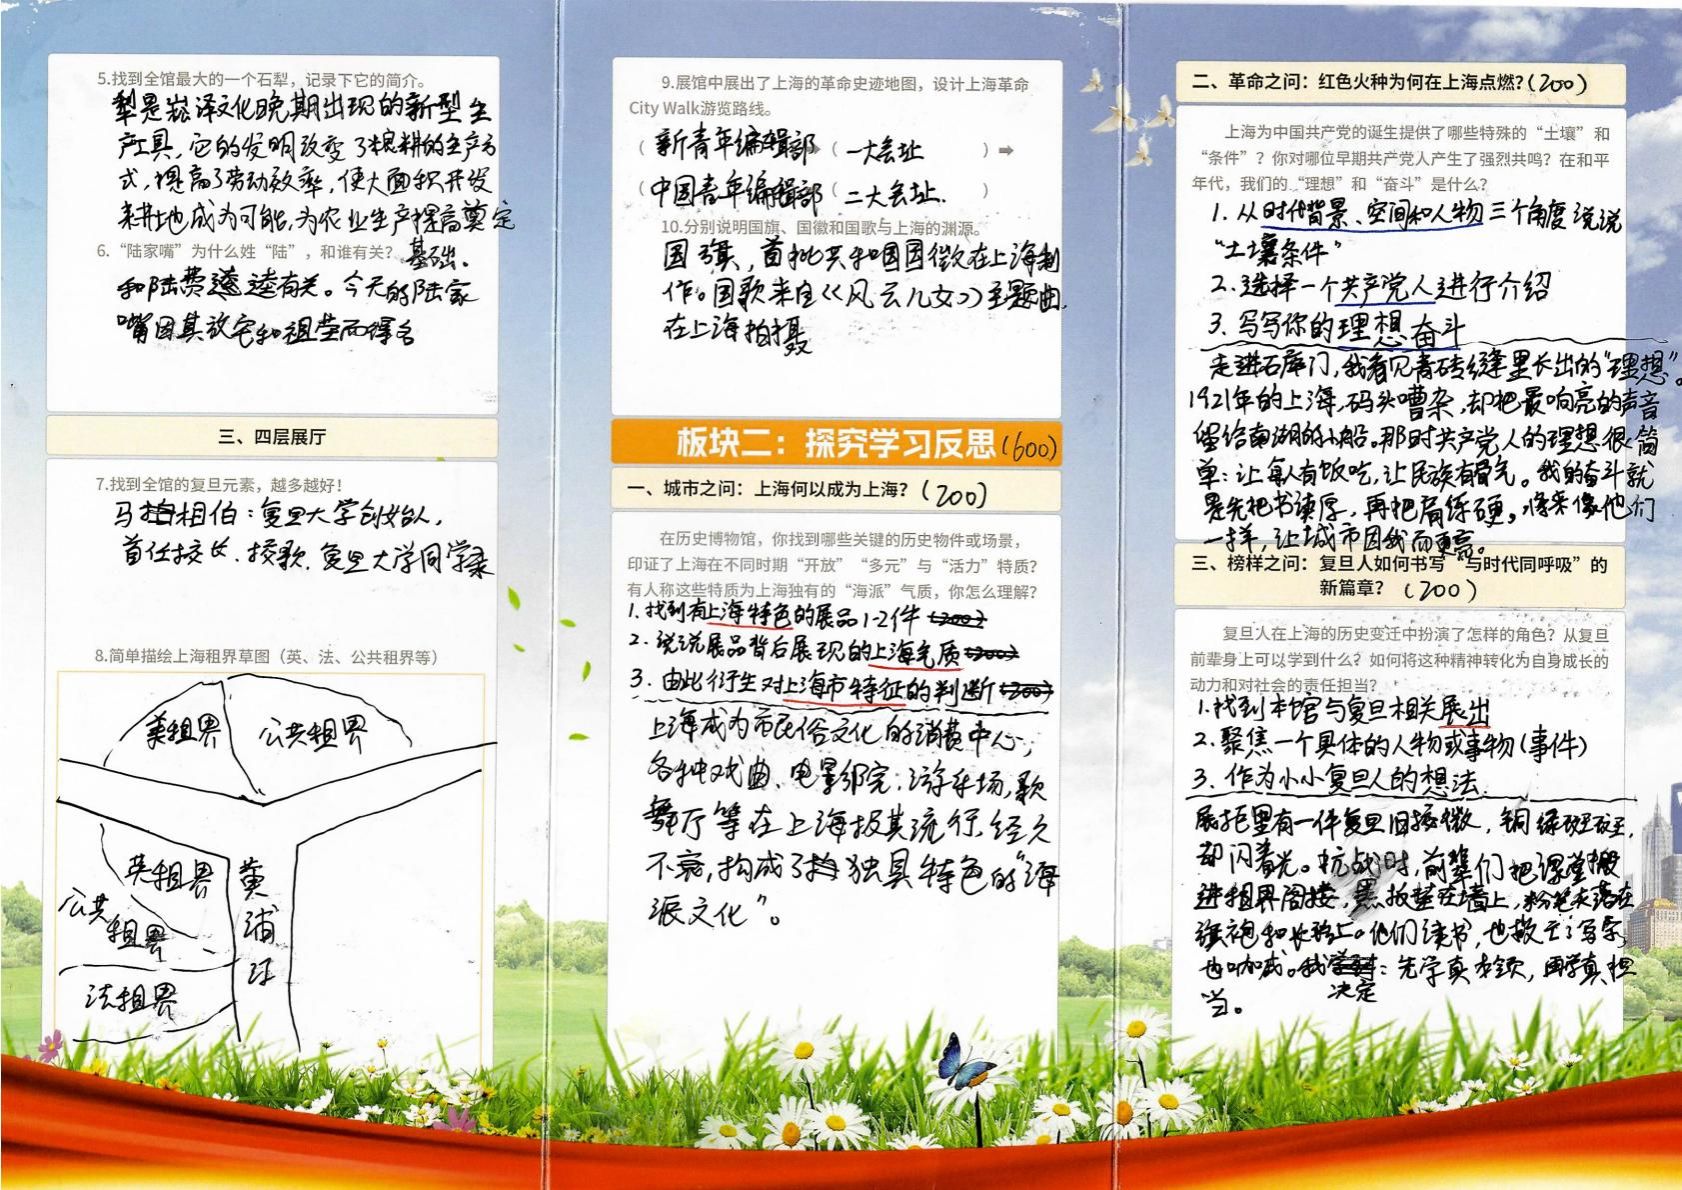 5.找到全馆最大的一个石犁，记录下它的简介。
犁是崧泽文化晚期出现的新型生
产工具，它的发明改变了耜耕的生产方
式，提高了劳动效率，使大面积开发
耕地成为可能，为农业生产提高奠定
基础。
6.“陆家嘴”为什么姓“陆”，和谁有关？
和陆费逵有关。今天的陆家
嘴因其故宅和祖茔而得名
三、四层展厅
7.找到全馆的复旦元素，越多越好！
马相伯：复旦大学创始人，
首任校长、校歌、复旦大学同学录
8.简单描绘上海租界草图（英、法、公共租界等）
美租界
公共租界
英租界
黄浦江
公共租界
法租界
9.展馆中展出了上海的革命史迹地图，设计上海革命
City Walk游览路线。
（新青年编辑部）➡（一大会址）➡
（中国青年编辑部）（二大会址.）
10.分别说明国旗、国徽和国歌与上海的渊源。
国旗，首批共和国国徽在上海制
作。国歌来自《风云儿女》主题曲，
在上海拍摄
板块二：探究学习反思(600)
一、城市之问：上海何以成为上海？(200)
在历史博物馆，你找到哪些关键的历史物件或场景，
印证了上海在不同时期“开放”“多元”与“活力”特质？
有人称这些特质为上海独有的“海派”气质，你怎么理解？
1.找到有上海特色的展品1-2件 (200)
2.说说展品背后展现的上海气质 (200)
3.由此衍生对上海市特征的判断 (200)
上海成为市民俗文化的消费中心，
各种戏曲、电影院；游乐场，歌
舞厅等在上海极其流行，经久
不衰，构成了独具特色的“海
派文化”。
二、革命之问：红色火种为何在上海点燃？(200)
上海为中国共产党的诞生提供了哪些特殊的“土壤”和
“条件”？你对哪位早期共产党人产生了强烈共鸣？在和平
年代，我们的“理想”和“奋斗”是什么？
1.从时代背景、空间和人物三个角度说说
“土壤条件”
2.选择一个共产党人进行介绍
3.写写你的理想奋斗
走进石库门，我看见青砖缝里长出的“理想”。
1921年的上海，码头嘈杂，却把最响亮的声音
留给南湖的小船。那时共产党人的理想很简
单：让每人有饭吃，让民族有骨气。我的奋斗就
是先把书读厚，再把肩练硬。将来像他们
一样，让城市因我而更亮。
三、榜样之问：复旦人如何书写“与时代同呼吸”的
新篇章？(200)
复旦人在上海的历史变迁中扮演了怎样的角色？从复旦
前辈身上可以学到什么？如何将这种精神转化为自身成长的
动力和对社会的责任担当？
1.找到本馆与复旦相关展出
2.聚焦一个具体的人物或事物(事件)
3.作为小小复旦人的想法
展柜里有一件复旦旧校徽，铜绿斑斑，
却闪着光。抗战时，前辈们把课堂搬
进租界阁楼，黑板挂在墙上，粉笔灰落在
旗袍和长衫上。他们读书，也救亡；写字，
也呐喊。我决定：先学真本领，再学真担
当。